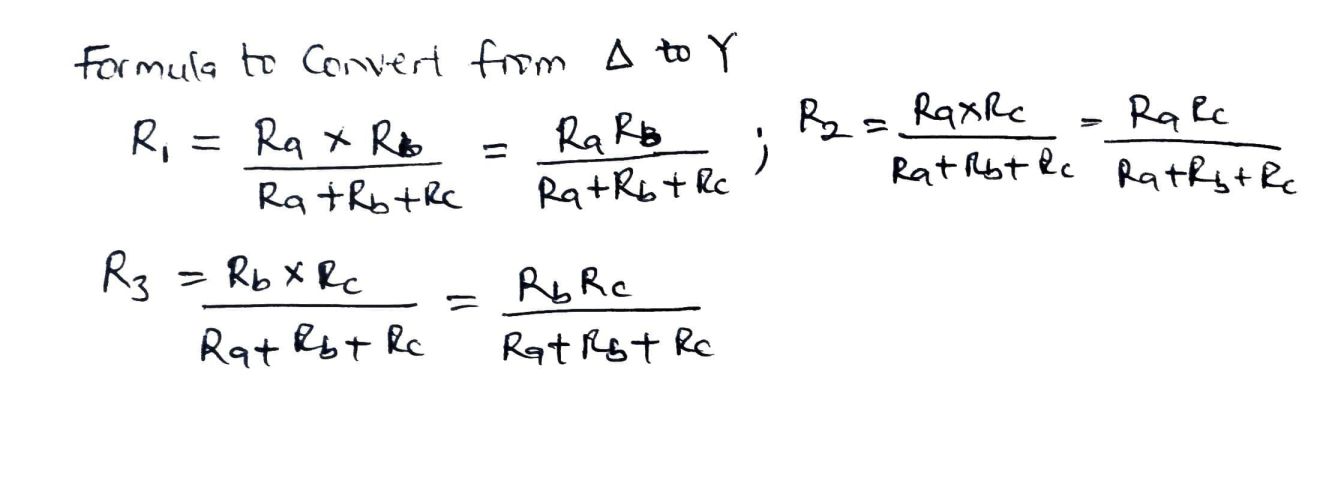 Formula to Convert from Δ to Y
R₁ = Ra × Rb / Ra + Rb + Rc = Ra Rb / Ra + Rb + Rc ; R₂ = Ra × Rc / Ra + Rb + Rc = Ra Rc / Ra + Rb + Rc
R₃ = Rb × Rc / Ra + Rb + Rc = Rb Rc / Ra + Rb + Rc